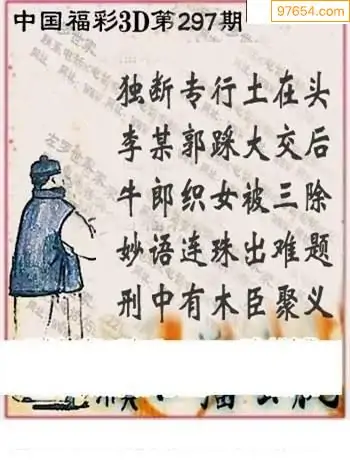 中国福彩3D第297期
97654.com
独断专行土在头
李某郭踩大交后
牛郎织女被三除
妙语连珠出难题
刑中有木臣聚义